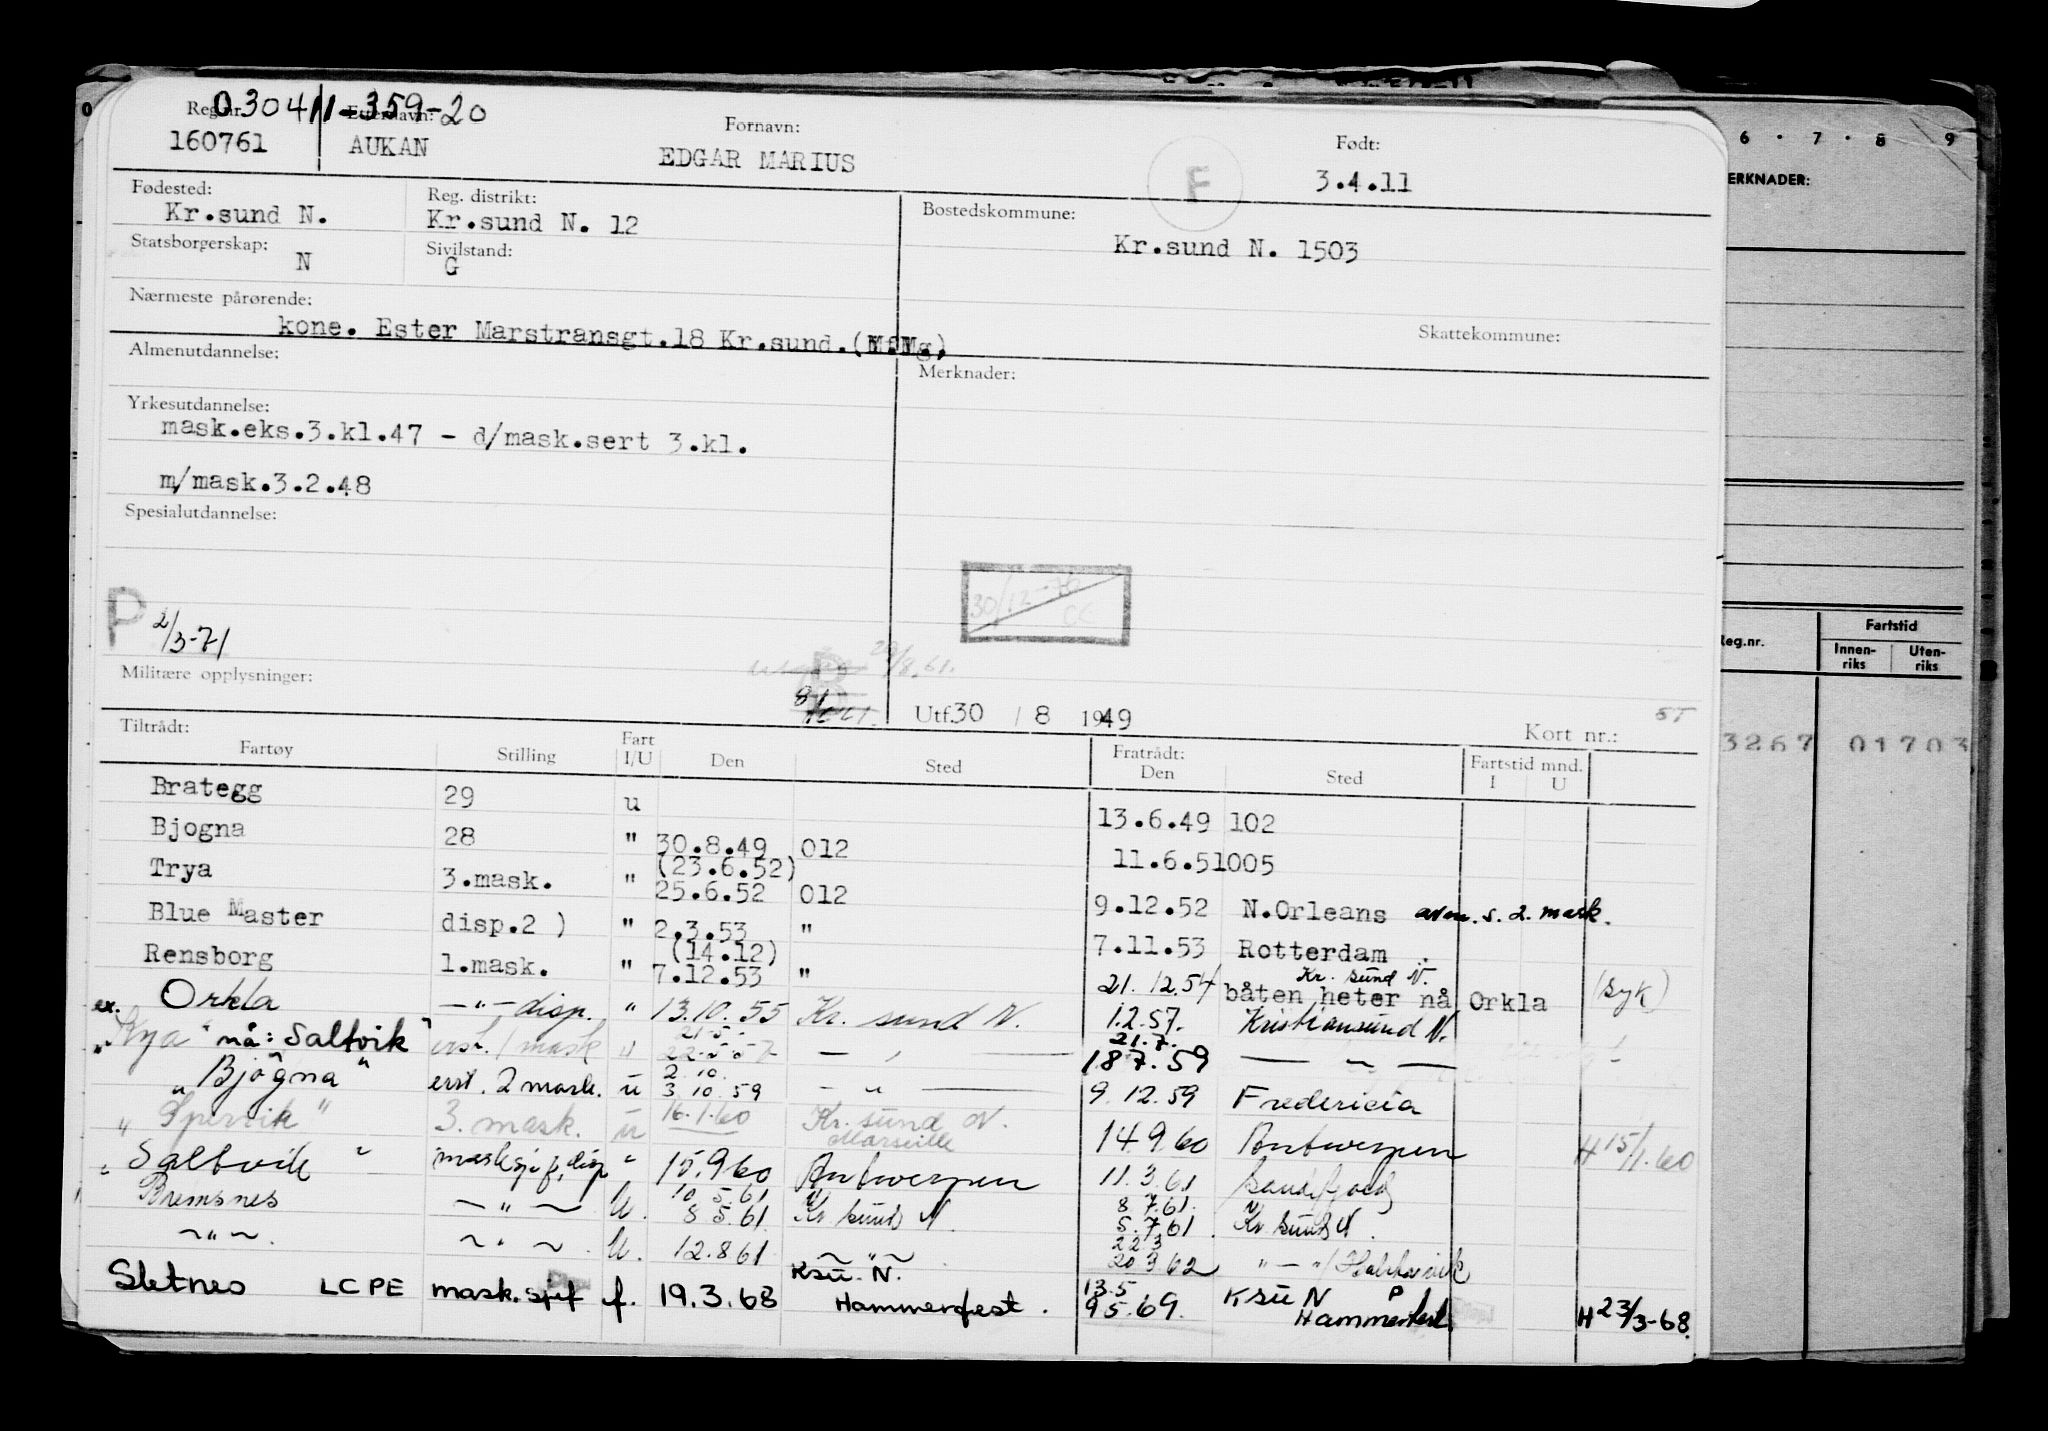 030411-359-20
Reg.nr. Etternavn: Fornavn: Født:
160761 AUKAN EDGAR MARIUS F 3.4.11
Fødested: Reg. distrikt: Bostedskommune:
Kr.sund N. Kr.sund N. 12
Statsborgerskap: Sivilstand: Kr.sund N. 1503
N G
Nærmeste pårørende:
kone. Ester Marstransgt.18 Kr.sund.(M.M.g) Skattekommune:
Almenutdannelse: Merknader:
Yrkesutdannelse:
mask.eks.3.kl.47 - d/mask.sert 3.kl.
m/mask.3.2.48
Spesialutdannelse:
30/12-76
P 2/3-71
29/8.61.
Militære opplysninger:
Utf.30 / 8 1949 ST
Tiltrådt: Kort nr.:
Fartøy Stilling Fart I/U Den Sted Fratrådt: Den Sted Fartstid mnd. I U
Brategg 29 u 13.6.49 102
Bjogna 28 " 30.8.49 012 11.6.51 005
(23.6.52)
Trya 3.mask. " 25.6.52 012 9.12.52 N.Orleans avm. s. 2. mask.
Blue Master disp.2 ) " 2.3.53 " 7.11.53 Rotterdam .
(14.12)
Rensborg 1.mask. " 7.12.53 " 21.12.54 Kr. sund N.
båten heter nå Orkla (syk)
ex. Orkla -"- disp. " 13.10.55 Kr. sund N. 1.2.57. Kristiansund N.
21.5. 21.7.
"Kya" nå: Saltvik" erst. 1 mask " 22.5.57 - " - 18.7.59 - " -
2.10.
"Bjøgna" erst. 2 mask. u 3.10.59 - " - 9.12.59 Fredericia
" " 3. mask. u 16.1.60 Kr. sund N. Marseille 14.9.60 Antwerpen H 15/1.60
" Saltvik " masksjef, disp " 15.9.60 Antwerpen 11.3.61 Sandefjord
10.5.61 8.7.61
Bremsnes - " - U. 8.5.61 Kr sund N. 5.7.61. Kr sund N.
22 3
- " - . - " - U. 12.8.61 - " - 20.3.62 " - " /
Ksu. N. 13.5 Ksu N P
Sletnes LCPE mask.sjef f. 19.3.68 Hammerfest . 9.5.69. Hammerfest. H 23/3-68.
0
6 · 7 · 8 9
ERKNADER:
Reg.nr. Fartstid
Innen-riks Uten-riks
3267 01703